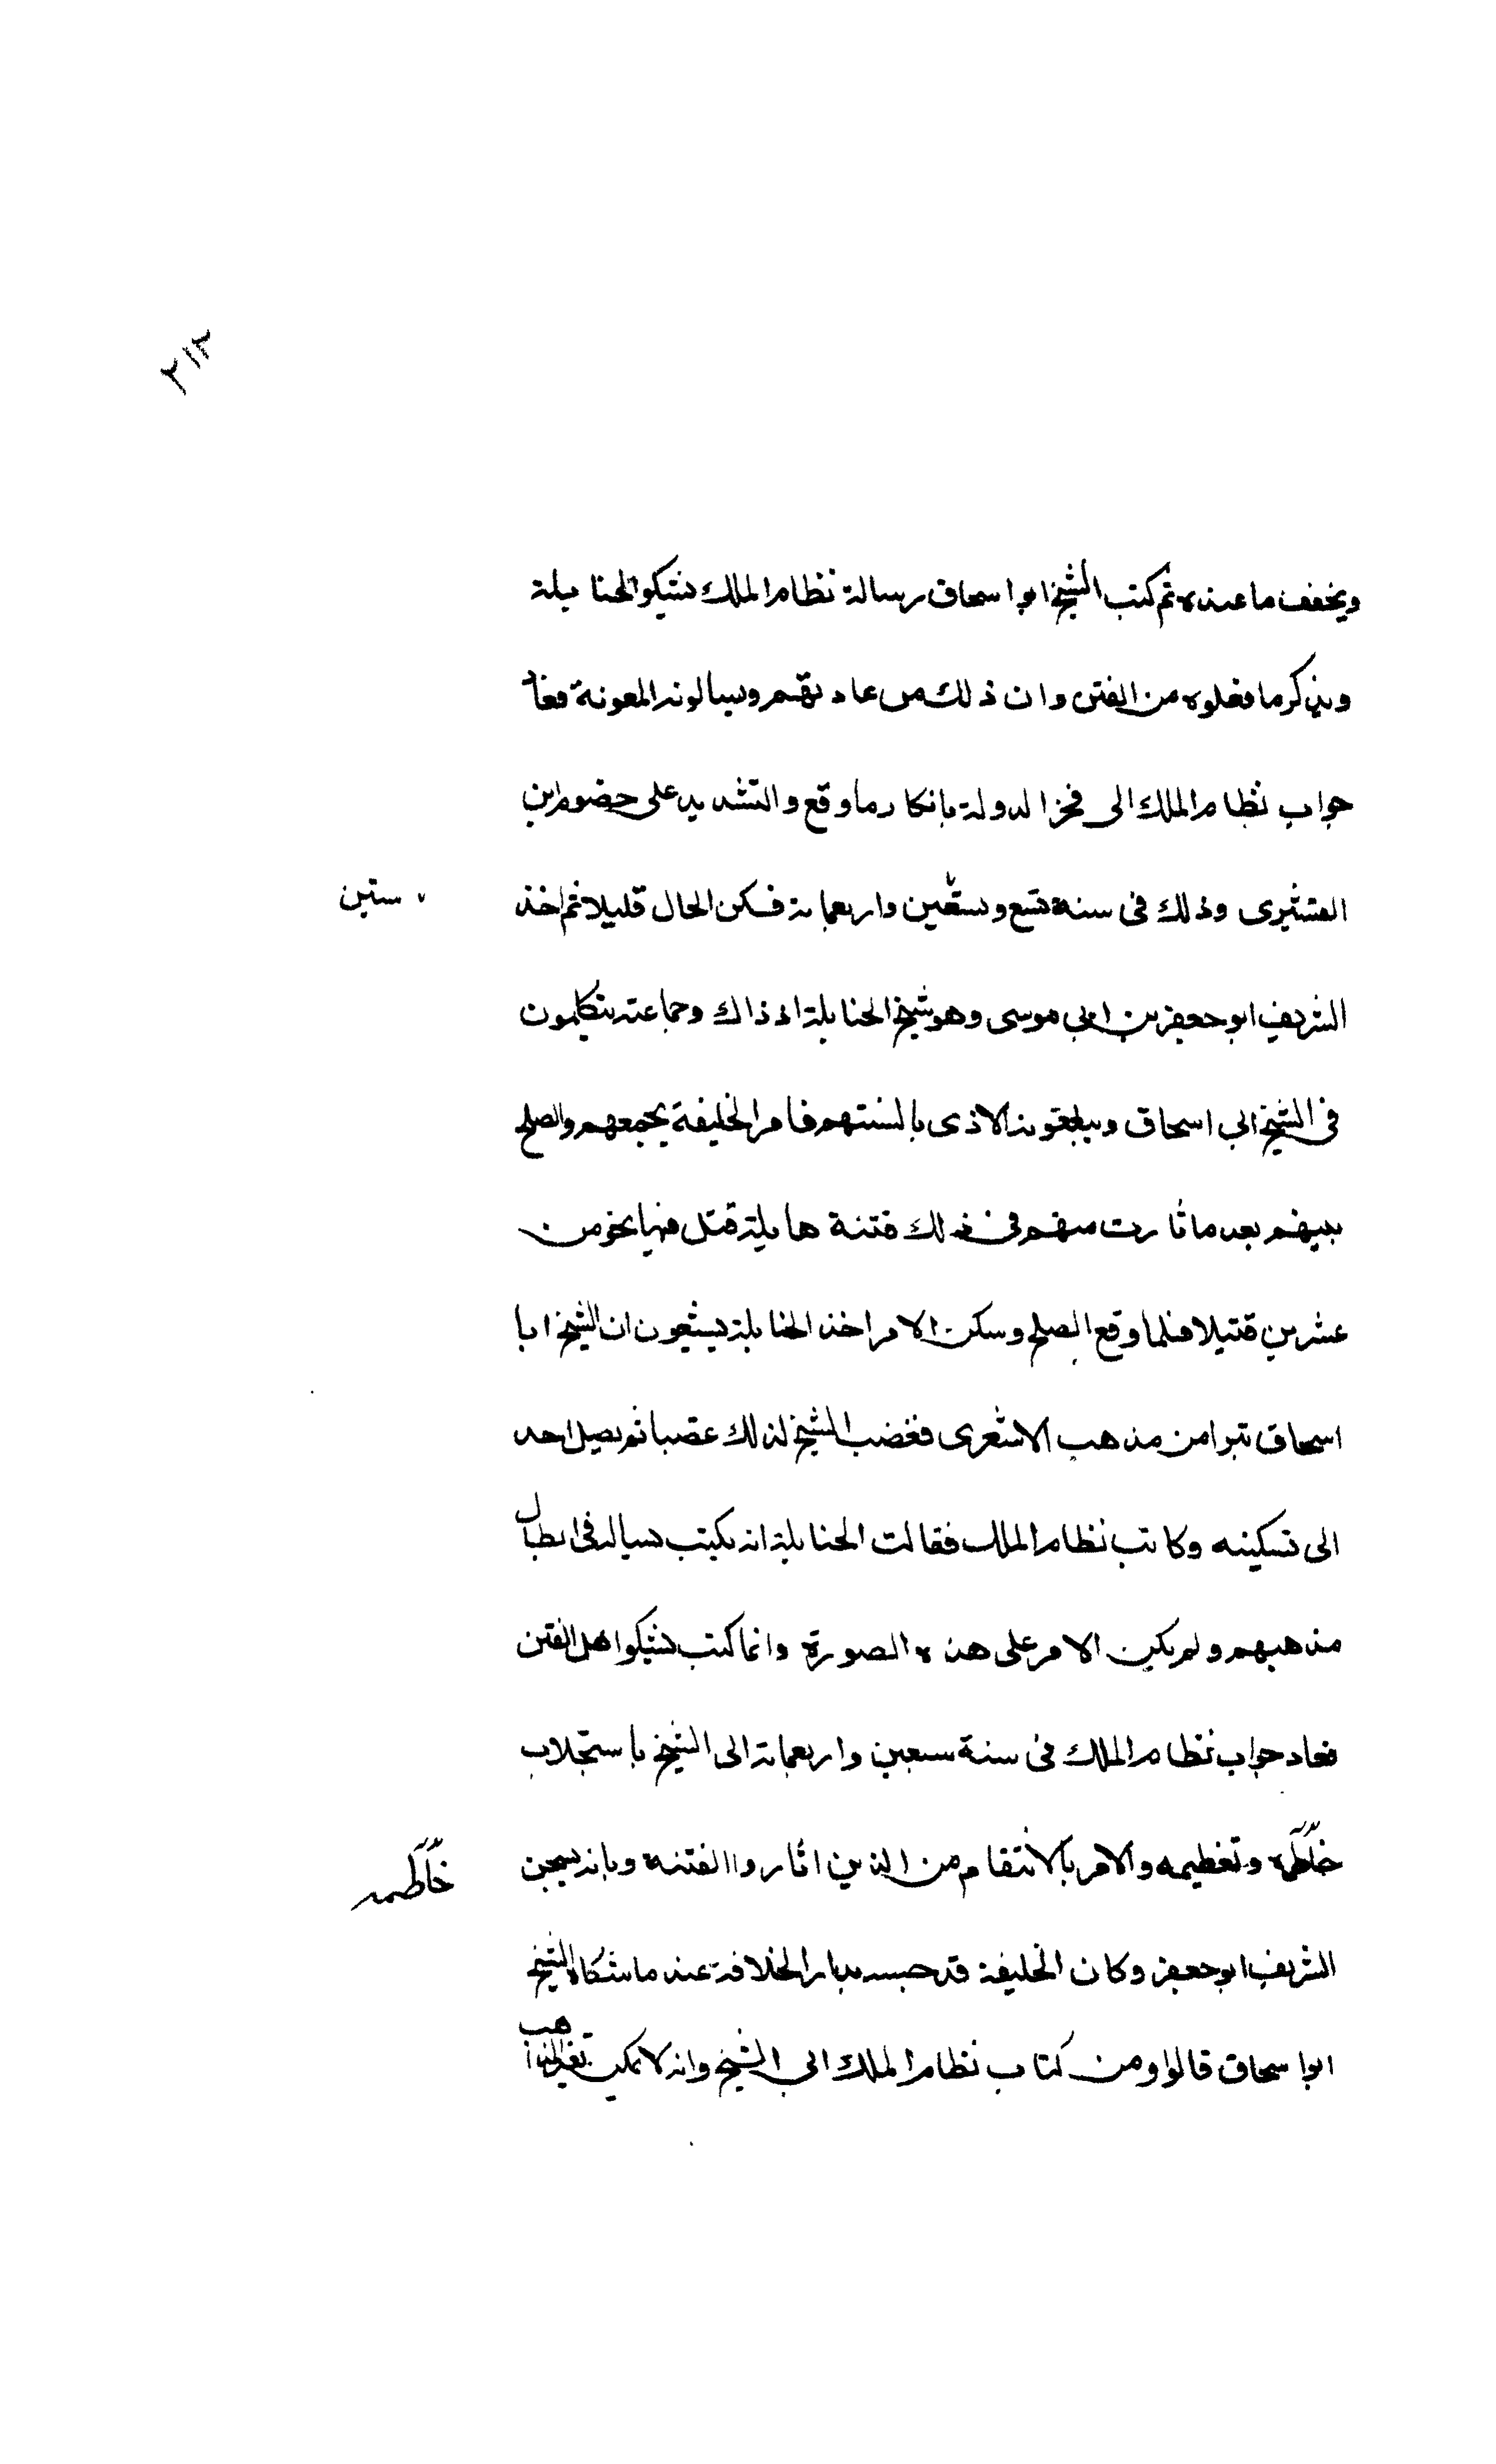 ٢١٢
ويخفف ما عنده ثم كتب الشيخ ابو اسحاق رسالة نظام الملك يشيكوا الحنابلة
ويذكر ما فعلوه من الفتن وان ذلك من عادتهم ويسالونه المعونة فعاد
جواب نظام الملك الى فخر الدولة بانكار ما وقع والتشديد على خصوم ابن
القشيرى وذلك فى سنة تسع وستين واربعماية فسكن الحال قليلا ثم اخذ
ستين
الشريف ابو جعفر بن ابى موسى وهو شيخ الحنابلة اذ ذاك وجماعته يتكلمون
فى الشيخ ابى اسحاق ويبلغونه الاذى بالسنتهم فامر الخليفة بجمعهم والصلح
بينهم بعد ما ثارت منهم فى ذلك فتنة هايلة قتل فيها نحو من
عشرين قتيلا فلما وقع الصلح وسكن الامر اخذ الحنابلة يشيعون ان الشيخ ابا
اسحاق تبرا من مذهب الاشعرى فغضب الشيخ لذلك غضبا لم يصل احد
الى تسكينه وكاتب نظام الملك فقالت الحنابلة انه يكتب يساله فى ابطال
مذهبهم ولم يكن الامر على هذه الصورة وانما كتب يشيكوا اهل الفتن
فعاد جواب نظام الملك فى سنة سبعين واربعماية الى الشيخ باستجلاب
خاطره وتعظيمه والامر بالانتقام من الذين اثاروا الفتنة وبانه يسجن
خاطره
الشريف ابو جعفر وكان الخليفة قد حبسه بدار الخلافة عند ما شكاه الشيخ
ابو اسحاق قالوا ومن كتاب نظام الملك الى الشيخ وانه لا يمكن تغيير المذاهب